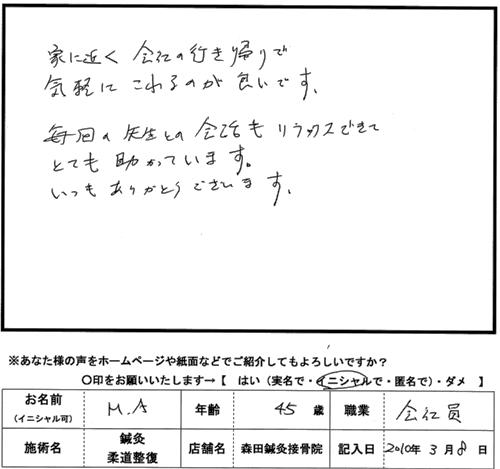 家に近く 会社の行き帰りで
気軽に これるのが 良いです。
毎回の 先生との 会話も リラックスできて
とても 助かっています。
いつも ありがとうございます。
※あなた様の声をホームページや紙面などでご紹介してもよろしいですか？
〇印をお願いいたします→【 はい（実名で・イニシャルで・匿名で）・ダメ 】
お名前 （イニシャル可） M.A 年齢 45 歳 職業 会社員
施術名 鍼灸 柔道整復 店舗名 森田鍼灸接骨院 記入日 2010年 3月 8日